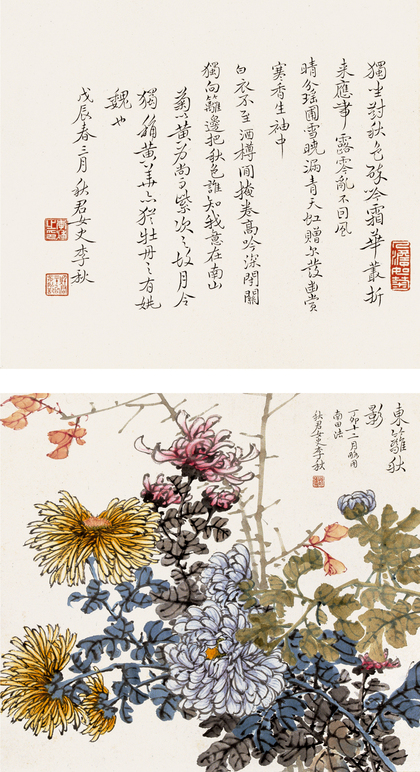 獨坐對秋色孤吟霜華叢折
来應幸露零亂不回風
晴分瑶圃雪曉漏青天虹贈尔發幽賞
寒香生袖中
白衣不至酒樽間掩卷高吟深閉關
獨向籬邊把秋色誰知我意在南山
菊以黄為尚而紫次之故月令
獨稱黄華亦猶牡丹之有姚
魏也
戊辰春三月秋君女史李秋
東籬秋
影
丁卯十二月略用
南田法
秋君女史李秋